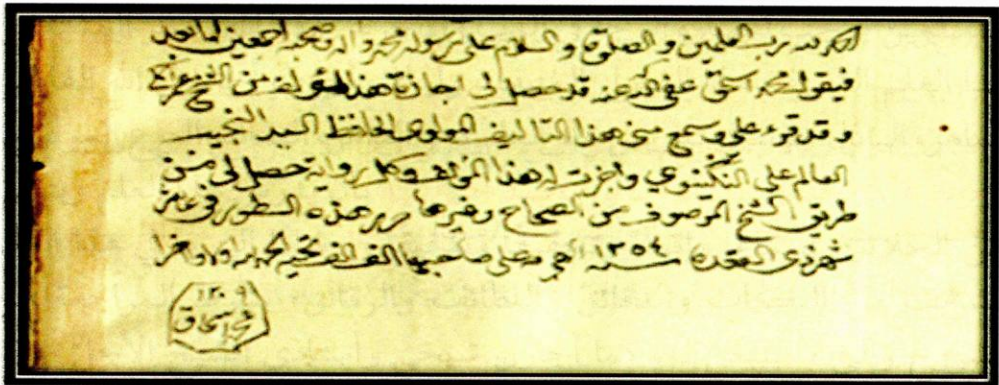 الحمد لله رب العلمين والصلوة والسلام على رسوله محمد وآله وصحبه اجمعين اما بعد
فيقول محمد اسحق عفى الله عنه قد حصل لى اجازة هذا المؤلف من الشيخ
وقد قرء على وسمع منى هذا التاليف المولوى الحافظ السيد النجيب
العالم على النگينوي واجزت له هذا المؤلف وكل رواية حصل لى من
طريق الشيخ الموصوف من الصحاح وغيرها حرر هذه السطور فى
شهر ذى القعدة سنه ١٢٥٤ الهجرية على صاحبها الف الف تحية الحمد لله اولا وآخرا
١٢٠٩
محمد اسحاق